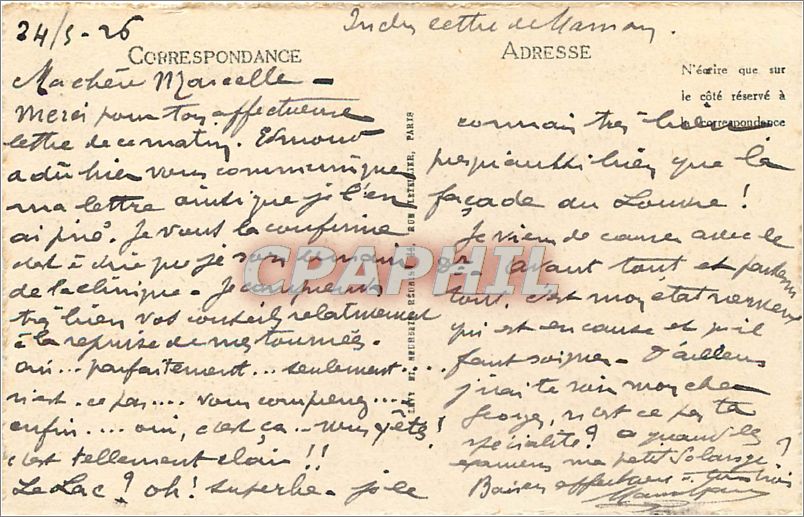 24/5-26
CORRESPONDANCE
Ma chère Marcelle –
Merci pour ton affectueuse
lettre de ce matin. Edmond
a dû hier vous communiquer
ma lettre ainsi que je l'en
ai prié. Je vous la confirme
c'est à dire que je sors demain
de la clinique – Je comprends
très bien vos conseils relativement
à la reprise de mes tournées.
oui... parfaitement... seulement...
n'est-ce pas.... vous comprenez....
enfin.... oui, c'est ça –
c'est tellement clair !!
Le Lac ? oh ! superbe – je le
LEVY ET NEURDEIN RÉUNIS, 44, RUE LETELLIER, PARIS
lettre de Maman
ADRESSE
N'écrire que sur
le côté réservé à
la correspondance
connais très bien
presqu'aussi bien que la
façade du Louvre !
Je viens de causer avec le
Dr – avant tout et par dessus
tout, c'est mon état nerveux
qui est en cause et qu'il
faut soigner – D'ailleurs
j'irai te voir mon cher
Georges, n'est ce pas ta
spécialité ? à quand les
examens ma petite Solange ?
Baisers affectueux à tous trois
CPAPHIL